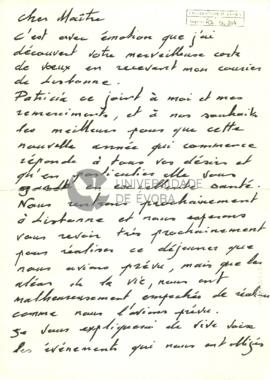 Cher Maître
C'est avec émotion que j'ai
découvert votre merveilleuse carte
de vœux en recevant mon courrier
de Lisbonne.
Patricia ce joint à moi et mes
remerciments, et à nos souhaits
les meilleurs pour que cette
nouvelle année qui commence
réponde à tous vos désirs et
qu'en particulier elle vous
santé.
Nous prochainement
à Lisbonne et nous esperons
vous revoir très prochainement
pour réaliser ce déjeuner que
nous avions prévu, mais que les
aléas de la vie, nous ont
malheureusement empechés de réaliser
comme nous l'avions prévu.
Je vous expliquerai de vive voix
les évènements qui nous ont obligés
UNIVERSIDADE
DE ÉVORA